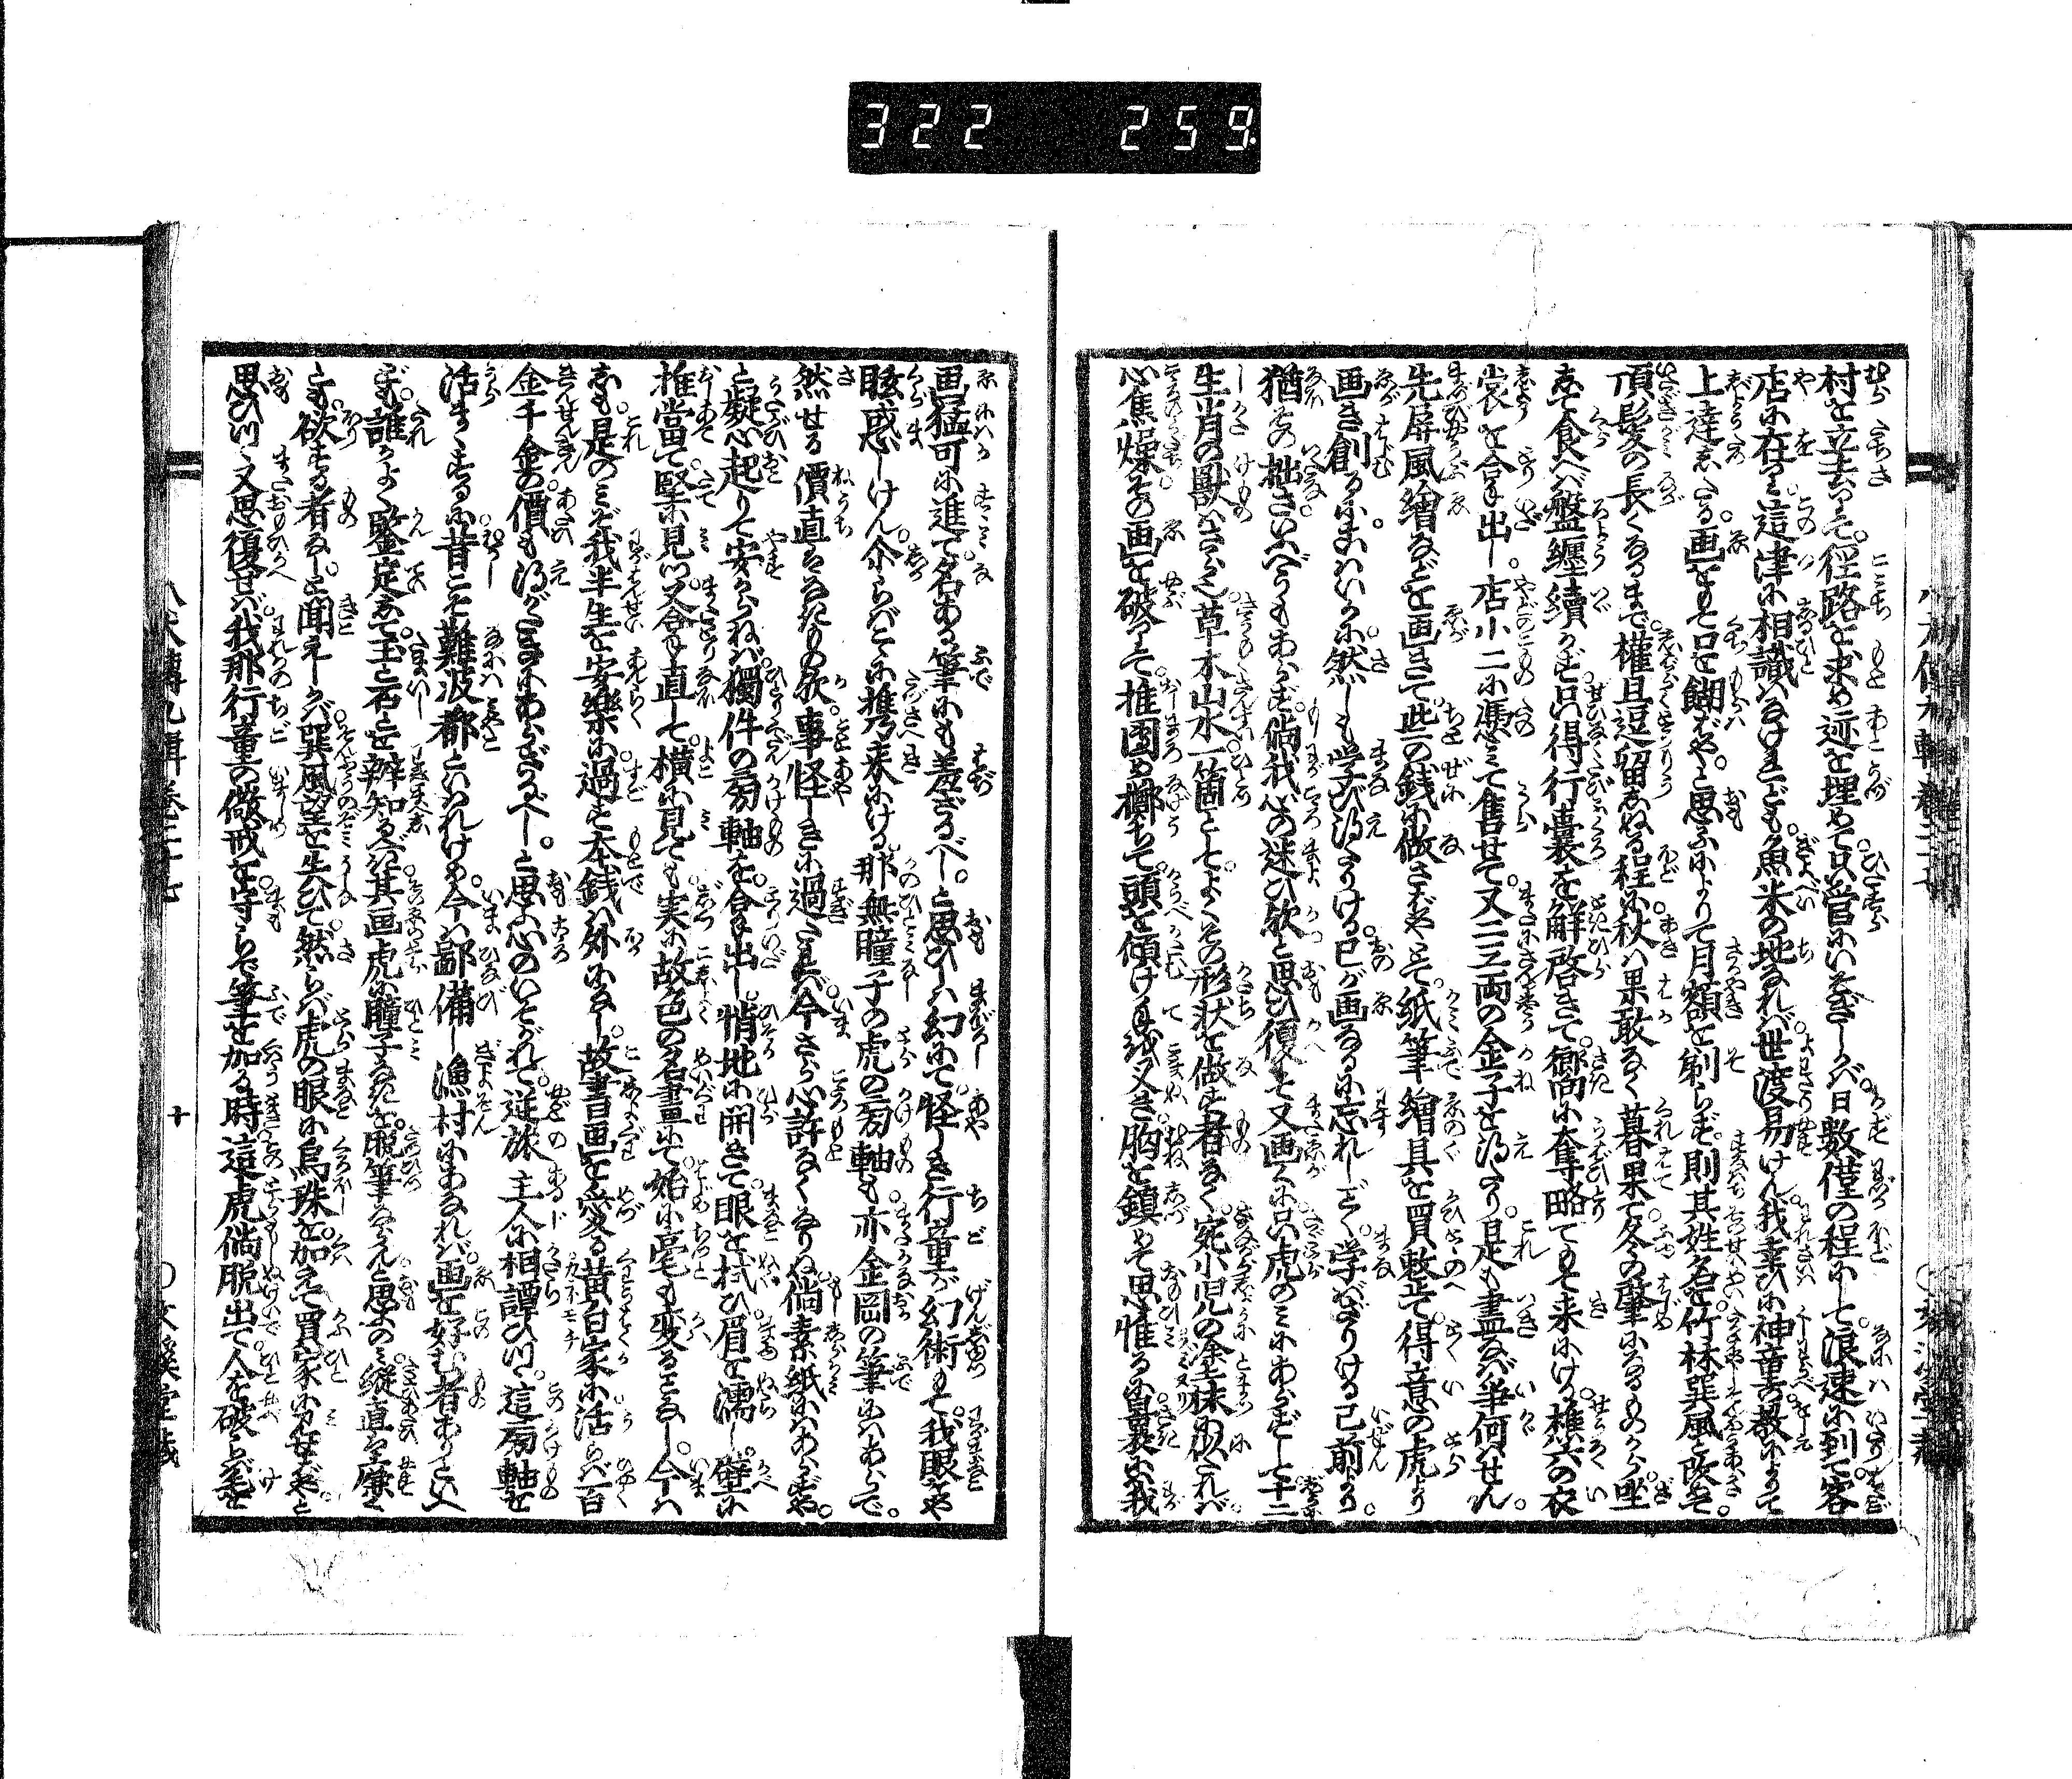 322 259
村を立去つゝ。径路を求め迹を埋めて。只管にいそぎしかば。日数僅の程にして。浪速に到て客
店に在り。這津に相識はなけれども。魚米の地なれば。世渡易けん。我幸ひに神童の教によりて
上達したる。画をもて口を餬ばや。と思ふによりて月額を剃らず。則其姓名を。竹林巽風と改めて。
頂髪の長くなるまで。権且逗留しぬる程に。秋は果敢なく暮果て。冬の肇になるものから。坐
して食へば盤纏続かず。只得行嚢を解啓きて。嚮に奪略てもて来にける。樵六の衣
裳を合々出し。店小二に憑みて售せて。又二三両の金子を得たり。是も尽なば争何はせん。
先屏風絵などを画きて。些の銭に做さばや。とて紙筆絵具を買整て。得意の虎より
画き創るに。こはいかに。然しも学び得たりける。己が画なるに忘れしごとく。学ばざりける已前より。
猶その拙さいふべうもあらず。倘我心の迷ひ欤と思ひ復しつゝ又画くに。只虎のみにあらずして。十二
生肖の獣はさら也。草木山水一箇として。よくその形状を做す者なく。宛小児の塗抹に似たれば。
心焦燥てその画を破りつゝ。推円め擲ちて。頭を傾け手を叉き。胸を鎮めて思惟るに。曩に我
画猛可に進て。名ある筆にも羞ざるべし。と思ひしは幻にて。怪しき行童が幻術もて。我眼をや
眩惑しけん。尒らばとに携来にける。那無瞳子の虎の㓛軸も。亦金岡の筆にはあらで。
然せる価直はなきもの欤。事怪しきに過たれば。今さら心許なくなりぬ。倘素紙にはあらずや。
と疑心起りて安からねば。独件の㓛軸を。合々出し。悄地に開きて。眼を拭ひ眉を濡し。壁に
推当て竪に見つ。又合々直して横に見ても。実に故色の名画にて。始に毫も変ることなし。今は
しも是のみぞ。我半生を安楽に。過す本銭は外になし。故書画を愛る黄白家に活らば一百
金千金の。価も得がたきにあらざるべし。と思ふ心のいそがれて。逆旅主人に相譚ひつ。這㓛軸を
活まくするに。昔こそ難波都といはれけめ。今は鄙備し漁村にあなれば。画を好む者ありといへ
ども。誰かよく鑒定して。玉と石とを弁知るべき。其画虎に瞳子なきを。脱筆ならんと思ふのみ。縦直を廉く
とも。欲する者なし。と聞えしかば。巽風望を失ひて。然らば虎の眼に烏珠を。加えて買家に見せばや。と
思ひつゝ又思復せば。我那行童の儆戒を。守らで筆を加る時。這虎倘脱出て。人を破らば毛を
八犬傳九輯巻二十七
十
○文溪堂蔵